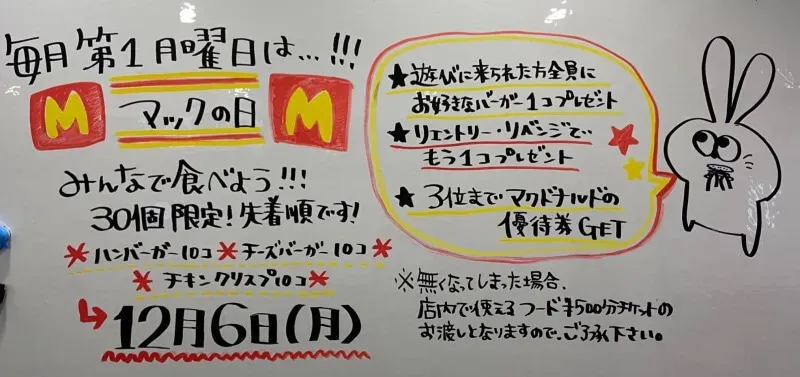 毎月第1月曜日は...!!!
M マックの日 M
みんなで食べよう!!!
30個限定!先着順です!
*ハンバーガー10コ*チーズバーガー10コ*
*チキンクリスプ10コ*
↳12月6日(月)
★遊びに来られた方全員に
お好きなバーガー1コプレゼント
★リエントリー・リベンジで…
もう1コプレゼント
★3位までマクドナルドの
優待券GET
※無くなってしまった場合、
店内で使えるフード¥500分チケットの
お渡しとなりますので、ご了承下さい。